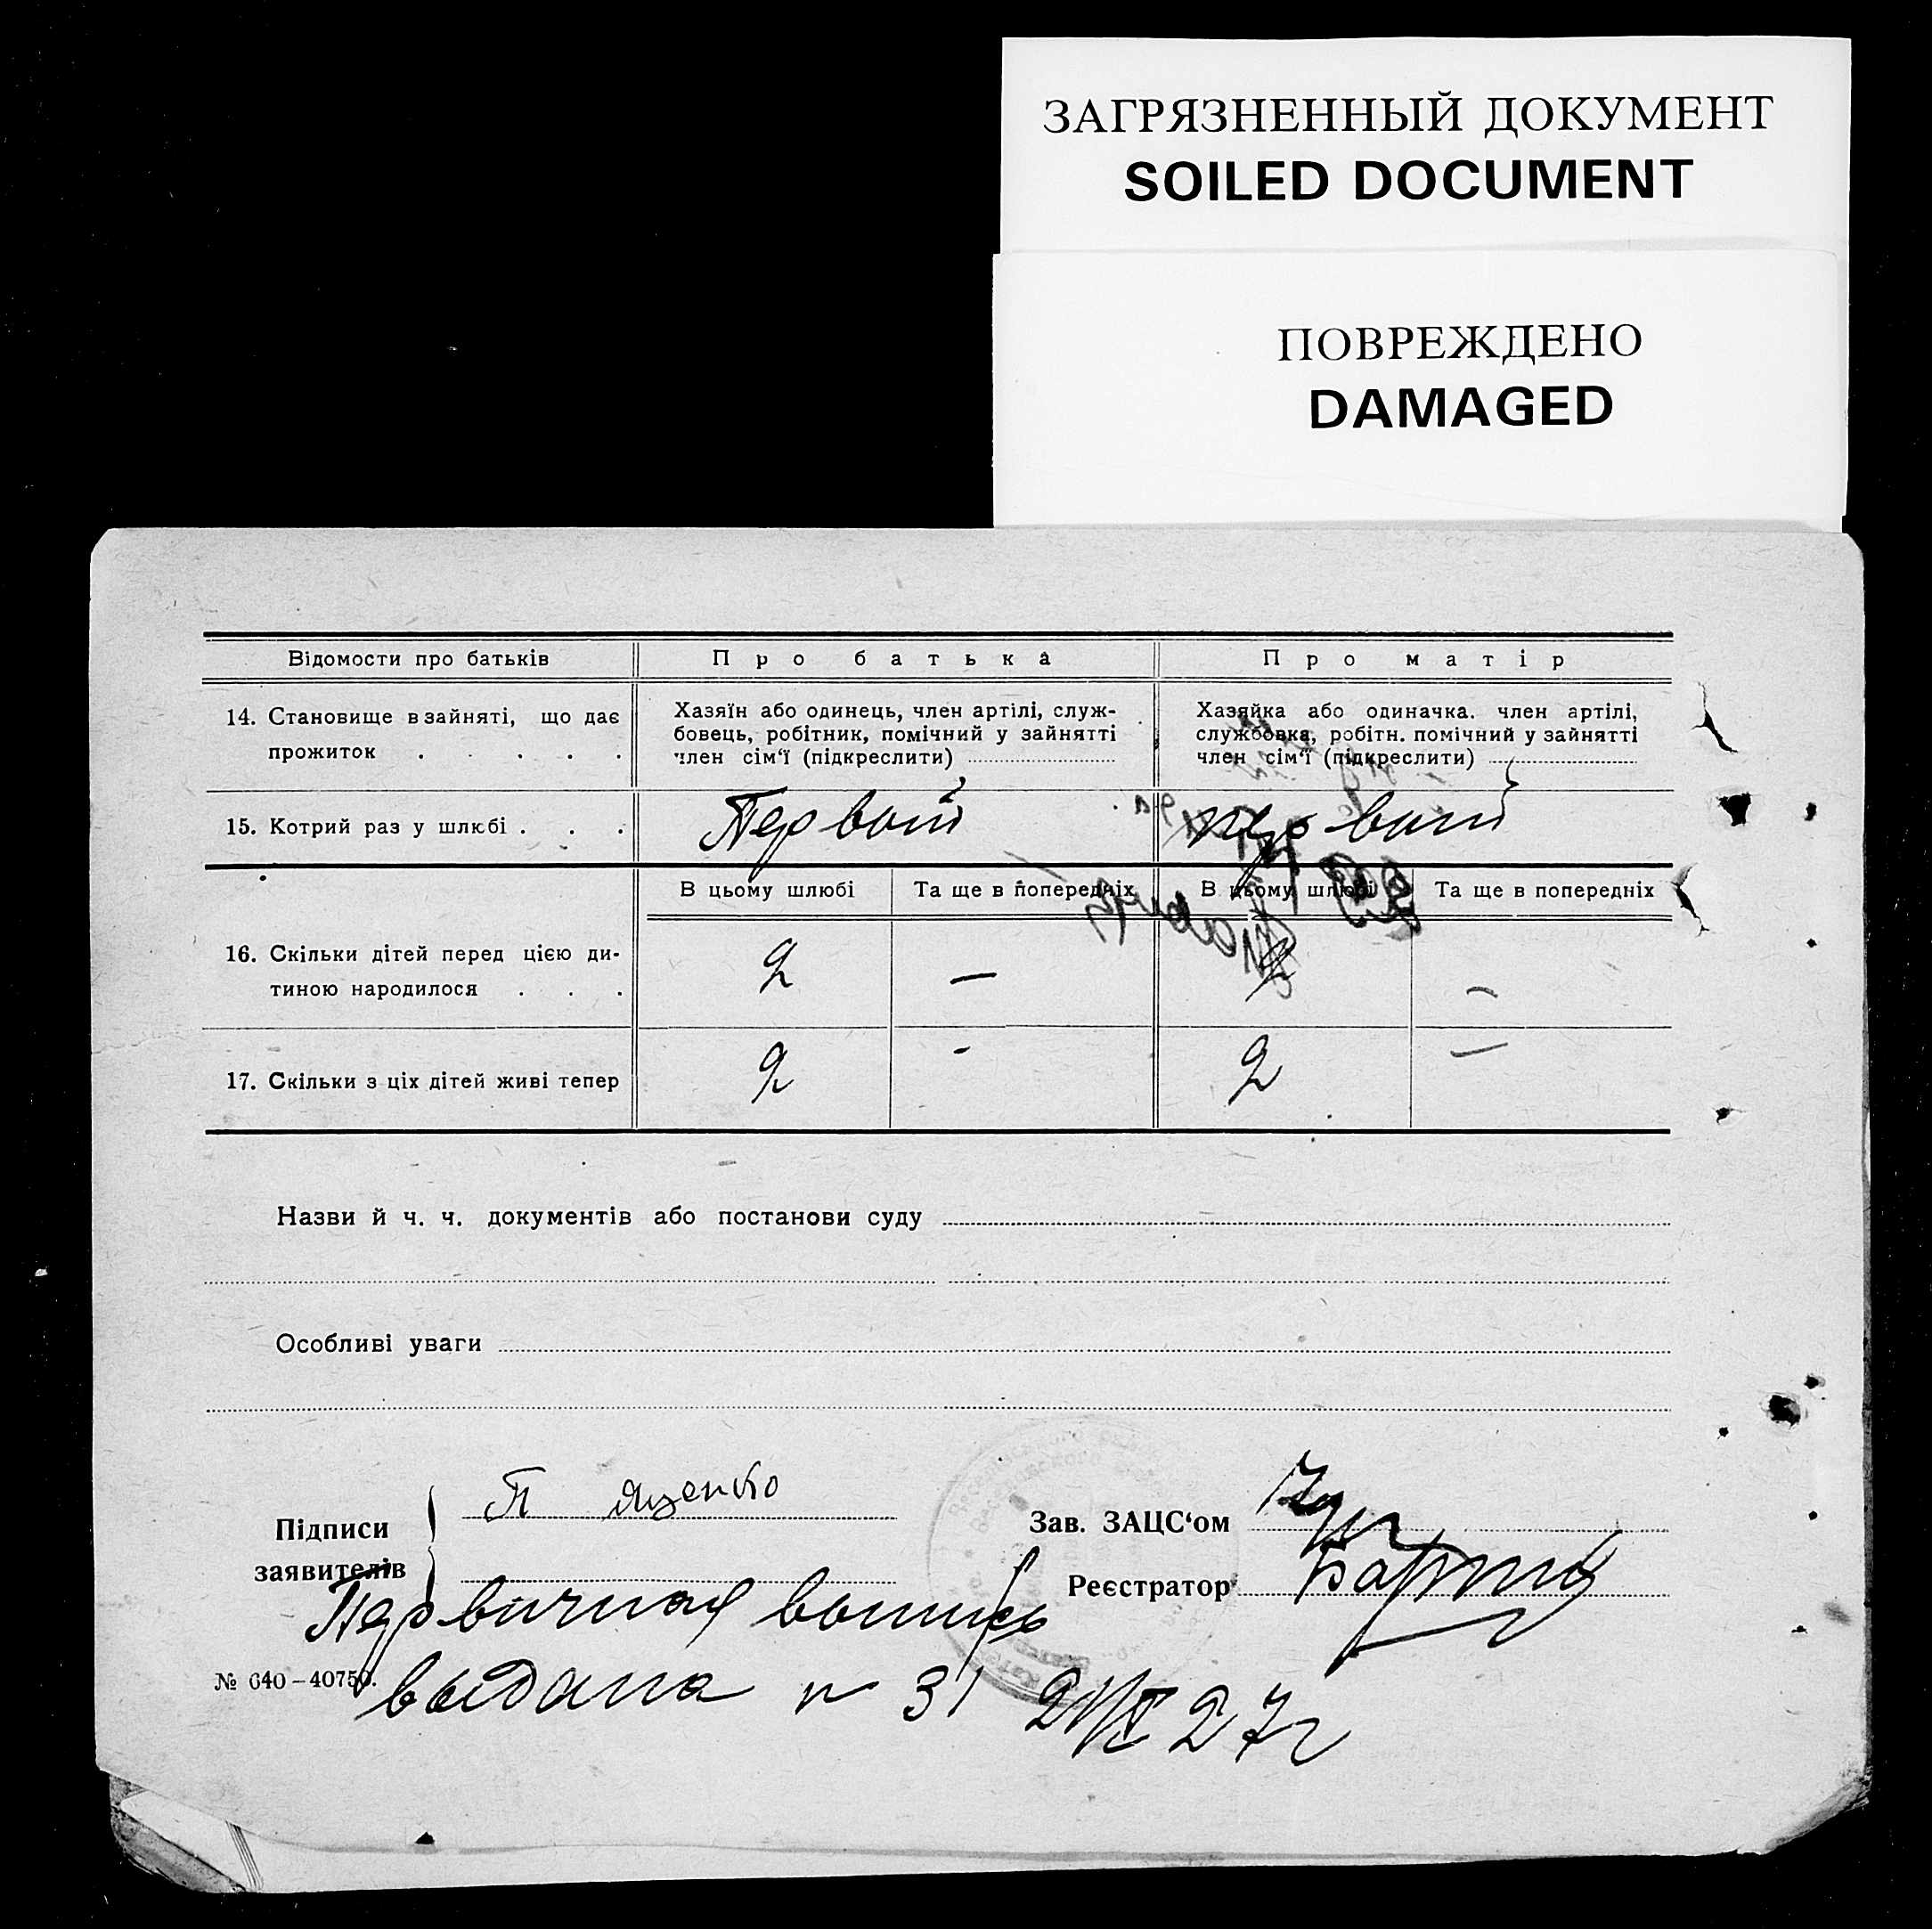 ЗАГРЯЗНЕННЫЙ ДОКУМЕНТ
SOILED DOCUMENT
ПОВРЕЖДЕНО
DAMAGED
Відомости про батьків
Про батька
Про матір
14. Становище в зайняті, що дає
прожиток . . . . .
Хазяїн або одинець, член артілі, служ-
бовець, робітник, помічний у зайнятті
член сім‘ї (підкреслити)
Хазяйка або одиначка. член артілі,
службовка, робітн. помічний у зайнятті
член сім‘ї (підкреслити)
15. Котрий раз у шлюбі . . .
Первый
первый
В цьому шлюбі
Та ще в попередніх
В цьому шлюбі
Та ще в попередніх
16. Скільки дітей перед цією ди-
тиною народилося . . .
2
—
2
—
17. Скільки з ціх дітей живі тепер
2
-
2
—
Назви й ч. ч. документів або постанови суду
Особливі уваги
Підписи
заявителів
П Яценко
Зав. ЗАЦС‘ом
Реєстратор
Первичная выпись
№ 640–40750.
выдана № 31 27г